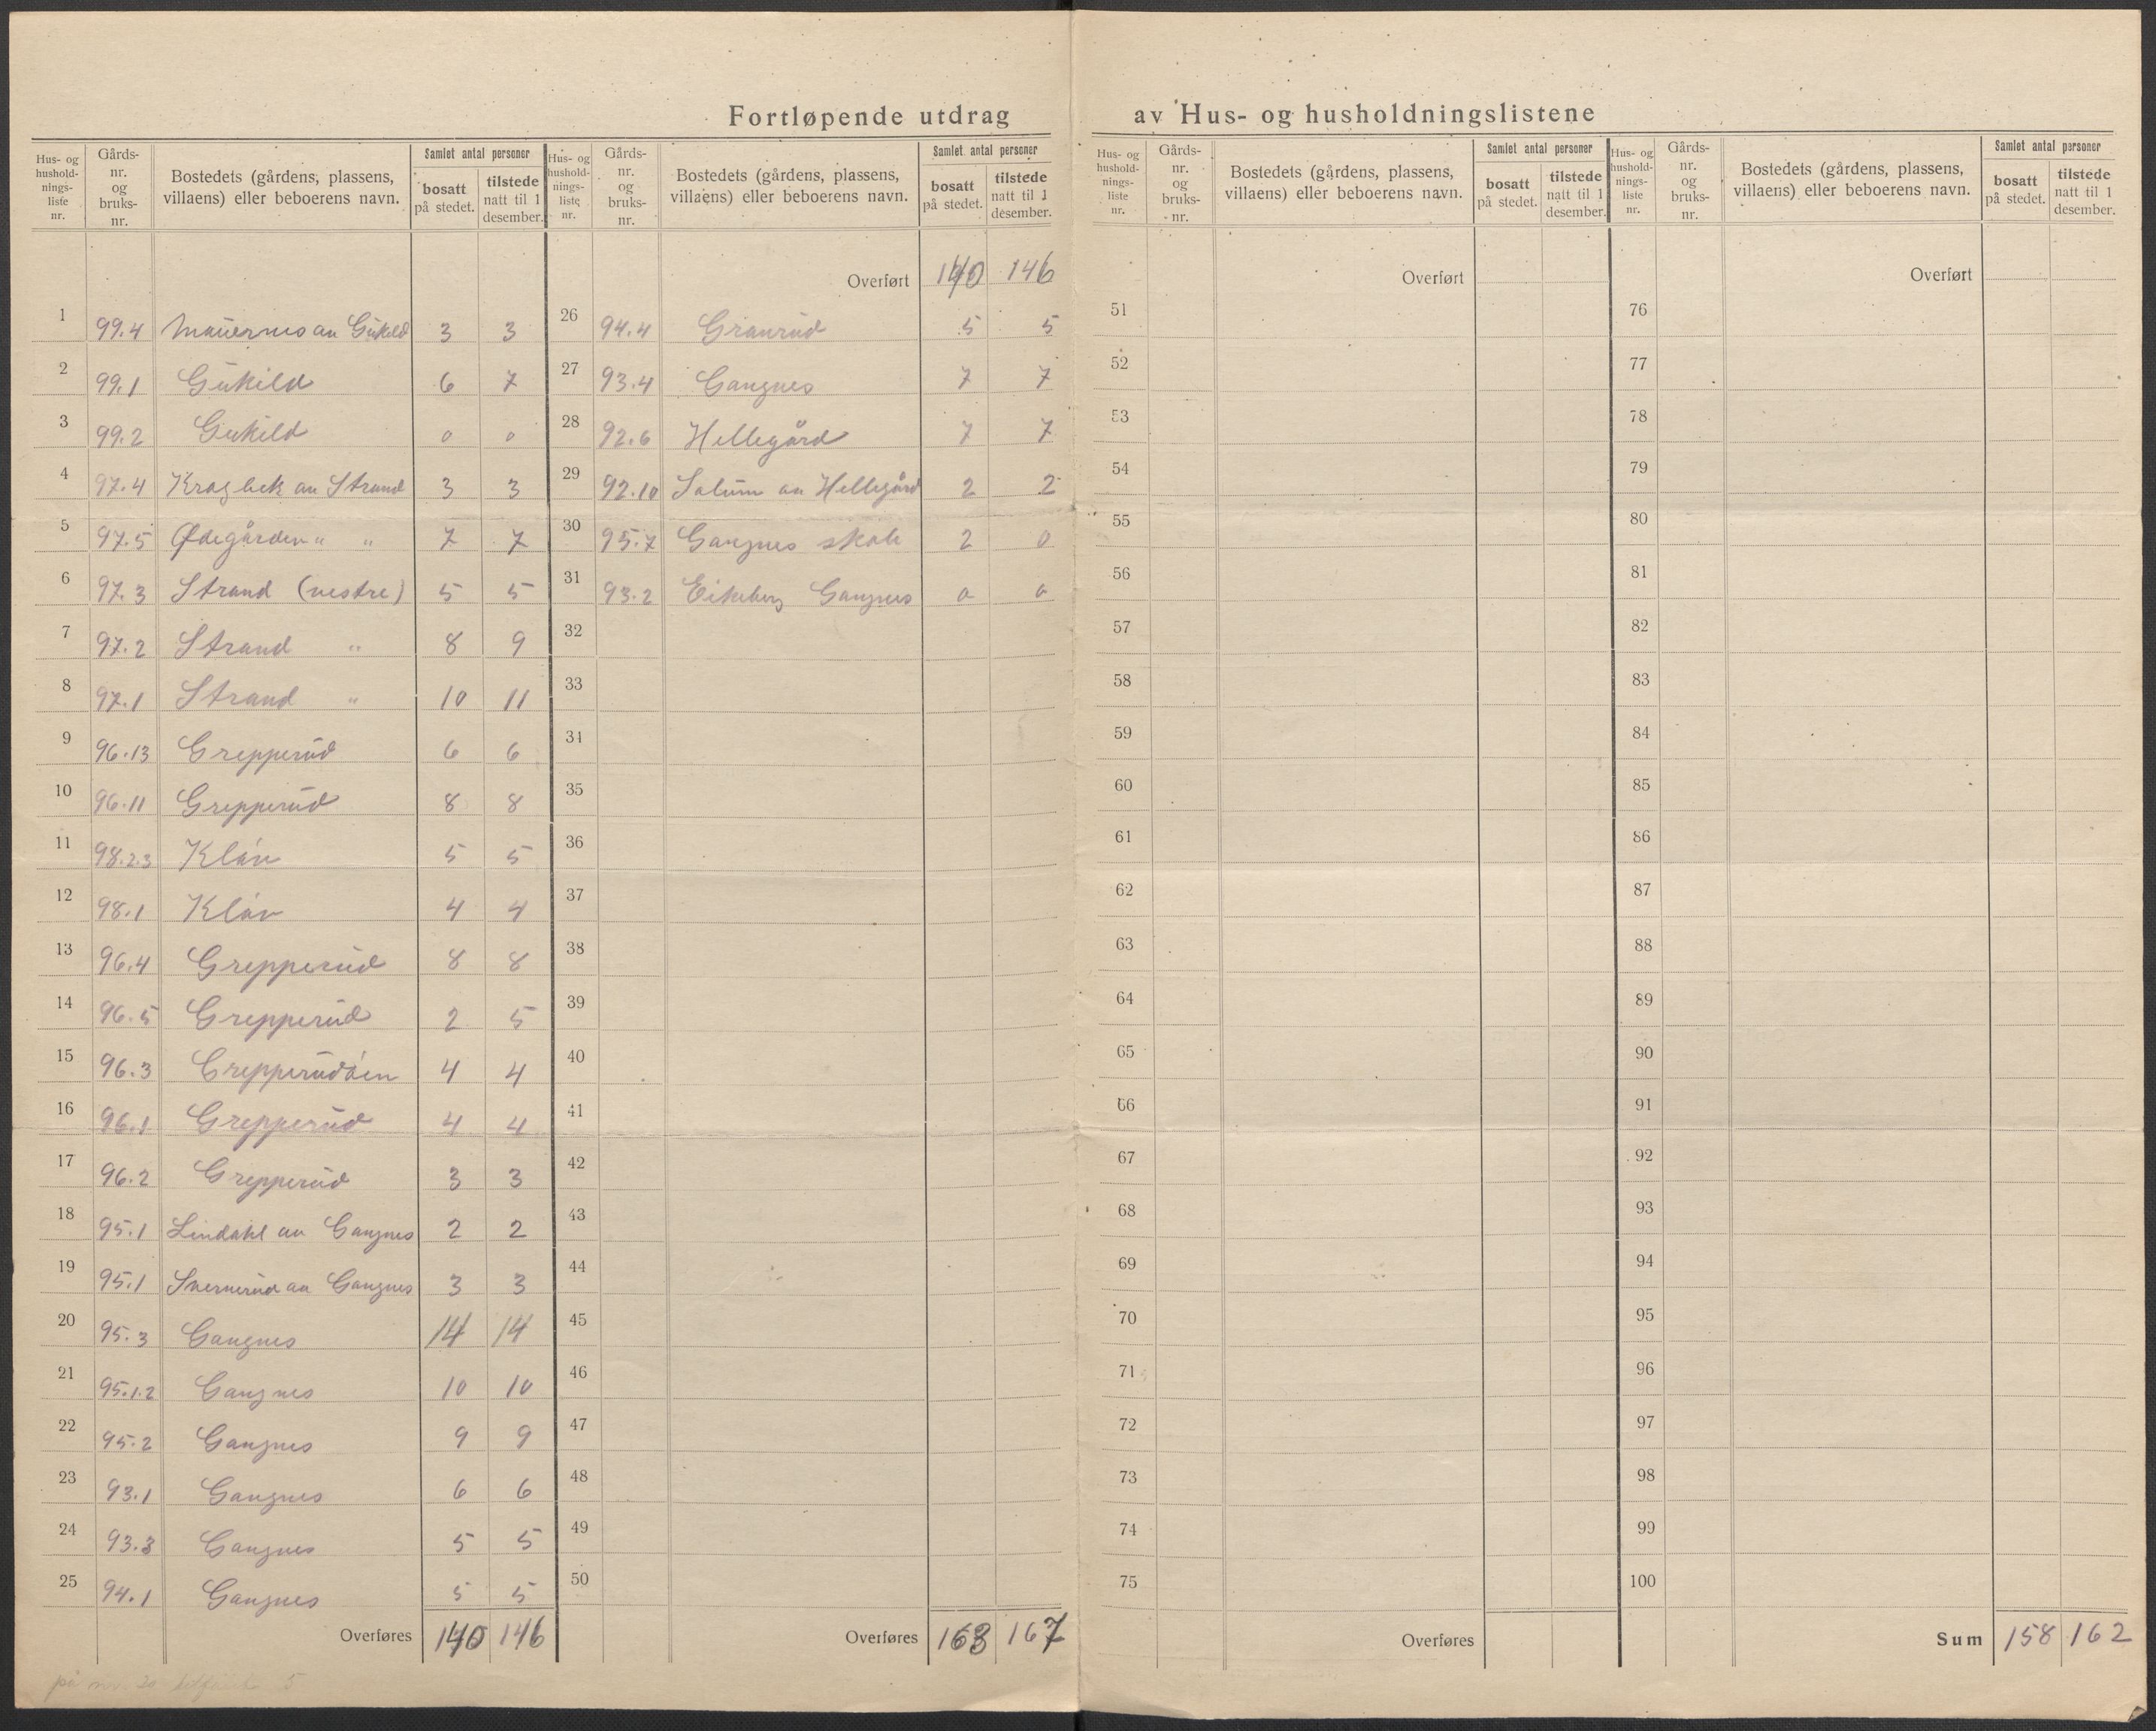 Fortløpende utdrag av Hus- og husholdningslistene
Hus- og hushold-nings-liste nr. | Gårds-nr. og bruks-nr. | Bostedets (gårdens, plassens, villaens) eller beboerens navn. | Samlet antal personer | bosatt på stedet. | tilstede natt til 1 desember.
1 99.4 Mauernes an Gukild 3 3
2 99.1 Gukild 6 7
3 99.2 Gukild 0 0
4 97.4 Kragbek an Strand 3 3
5 97.5 Ødegården " " 7 7
6 97.3 Strand (vestre) 5 5
7 97.2 Strand " 8 9
8 97.1 Strand " 10 11
9 96.13 Grepperud 6 6
10 96.11 Grepperud 8 8
11 98.2.3 Klav 5 5
12 98.1 Klav 4 4
13 96.4 Grepperud 8 8
14 96.5 Grepperud 2 5
15 96.3 Grepperudåen 4 4
16 96.1 Grepperud 4 4
17 96.2 Grepperud 3 3
18 95.1 Lindahl an Gangnes 2 2
19 95.1 an Gangnes 3 3
20 95.3 Gangnes 14 14
21 95.1.2 Gangnes 10 10
22 95.2 Gangnes 9 9
23 93.1 Gangnes 6 6
24 93.3 Gangnes 5 5
25 94.1 Gangnes 5 5
Overføres 140 146
på nr. 20 5
Hus- og hushold-nings-liste nr. | Gårds-nr. og bruks-nr. | Bostedets (gårdens, plassens, villaens) eller beboerens navn. | Samlet antal personer | bosatt på stedet. | tilstede natt til 1 desember.
Overført 140 146
26 94.4 Granrud 5 5
27 93.4 Gangnes 7 7
28 92.6 Hellegård 7 7
29 92.10 Solum an Hellegård 2 2
30 95.7 Gangnes skole 2 0
31 93.2 Eikeberg Gangnes 0 0
32
33
31
35
36
37
38
39
40
41
42
43
44
45
46
47
48
49
50
Overføres 163 167
Hus- og hushold-nings-liste nr. | Gårds-nr. og bruks-nr. | Bostedets (gårdens, plassens, villaens) eller beboerens navn. | Samlet antal personer | bosatt på stedet. | tilstede natt til 1 desember.
Overført
51
52
53
54
55
56
57
58
59
60
61
62
63
64
65
66
67
68
69
70
71
72
73
74
75
Overføres
Hus- og hushold-nings-liste nr. | Gårds-nr. og bruks-nr. | Bostedets (gårdens, plassens, villaens) eller beboerens navn. | Samlet antal personer | bosatt på stedet. | tilstede natt til 1 desember.
Overført
76
77
78
79
80
81
82
83
84
85
86
87
88
89
90
91
92
93
94
95
96
97
98
99
100
Sum 158 162